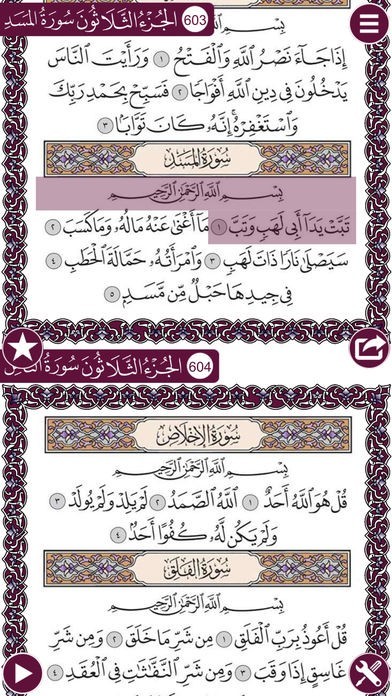 603 الجُزْءُ الثَّلَاثُونَ سُورَةُ المَسَدِ
بِسْمِ ٱللَّهِ ٱلرَّحْمَٰنِ ٱلرَّحِيمِ
إِذَا جَآءَ نَصْرُ ٱللَّهِ وَٱلْفَتْحُ ١ وَرَأَيْتَ ٱلنَّاسَ
يَدْخُلُونَ فِي دِينِ ٱللَّهِ أَفْوَاجًا ٢ فَسَبِّحْ بِحَمْدِ رَبِّكَ
وَٱسْتَغْفِرْهُ إِنَّهُۥ كَانَ تَوَّابًۢا ٣
سُورَةُ المَسَدِ
بِسْمِ ٱللَّهِ ٱلرَّحْمَٰنِ ٱلرَّحِيمِ
تَبَّتْ يَدَآ أَبِي لَهَبٍ وَتَبَّ ١ مَآ أَغْنَىٰ عَنْهُ مَالُهُۥ وَمَا كَسَبَ ٢
سَيَصْلَىٰ نَارًا ذَاتَ لَهَبٍ ٣ وَٱمْرَأَتُهُۥ حَمَّالَةَ ٱلْحَطَبِ ٤
فِي جِيدِهَا حَبْلٌ مِّن مَّسَدٍۭ ٥
604 الجُزْءُ الثَّلَاثُونَ سُورَةُ
سُورَةُ الإِخْلَاصِ
بِسْمِ ٱللَّهِ ٱلرَّحْمَٰنِ ٱلرَّحِيمِ
قُلْ هُوَ ٱللَّهُ أَحَدٌ ١ ٱللَّهُ ٱلصَّمَدُ ٢ لَمْ يَلِدْ وَلَمْ يُولَدْ ٣
وَلَمْ يَكُن لَّهُۥ كُفُوًا أَحَدٌۢ ٤
سُورَةُ الفَلَقِ
بِسْمِ ٱللَّهِ ٱلرَّحْمَٰنِ ٱلرَّحِيمِ
قُلْ أَعُوذُ بِرَبِّ ٱلْفَلَقِ ١ مِن شَرِّ مَا خَلَقَ ٢ وَمِن شَرِّ
غَاسِقٍ إِذَا وَقَبَ ٣ وَمِن شَرِّ ٱلنَّفَّٰثَٰتِ فِي ٱلْعُقَدِ ٤